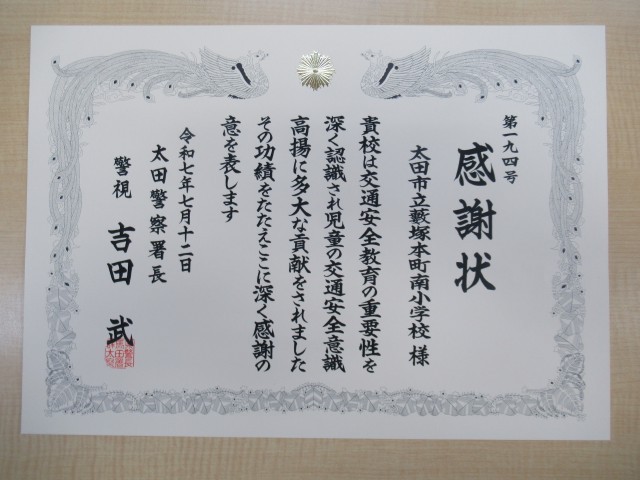 第一九四号
感謝状
太田市立藪塚本町南小学校 様
貴校は交通安全教育の重要性を
深く認識され児童の交通安全意識
高揚に多大な貢献をされました
その功績をたたえここに深く感謝の
意を表します
令和七年七月十二日
太田警察署長
警視 吉田 武